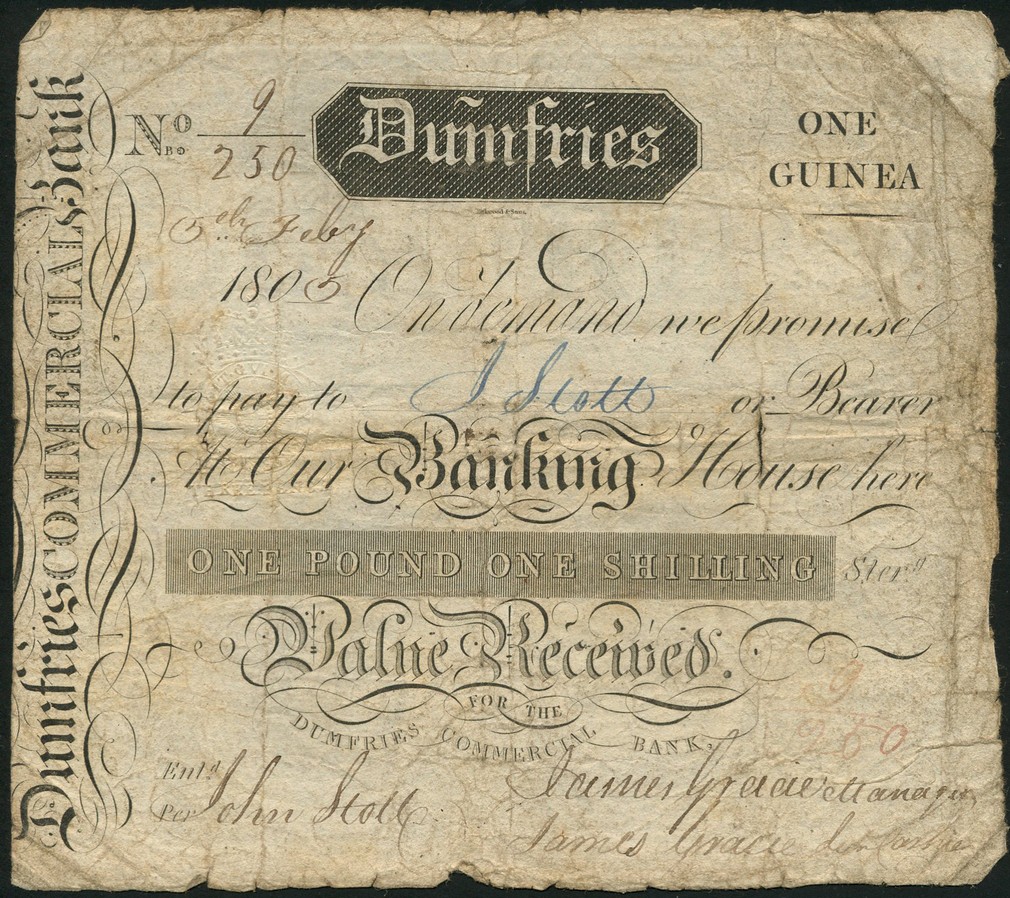 Dumfries COMMERCIAL Bank
No 9
B. 250
Dumfries
ONE
GUINEA
5th Feby
1805 On demand we promise
to pay to J Stott or Bearer
At Our Banking House here
ONE POUND ONE SHILLING Sterg
Value Received.
FOR THE
DUMFRIES COMMERCIAL BANK.
9
250
Entd
Per John Stott
James Gracie Manager
James Gracie